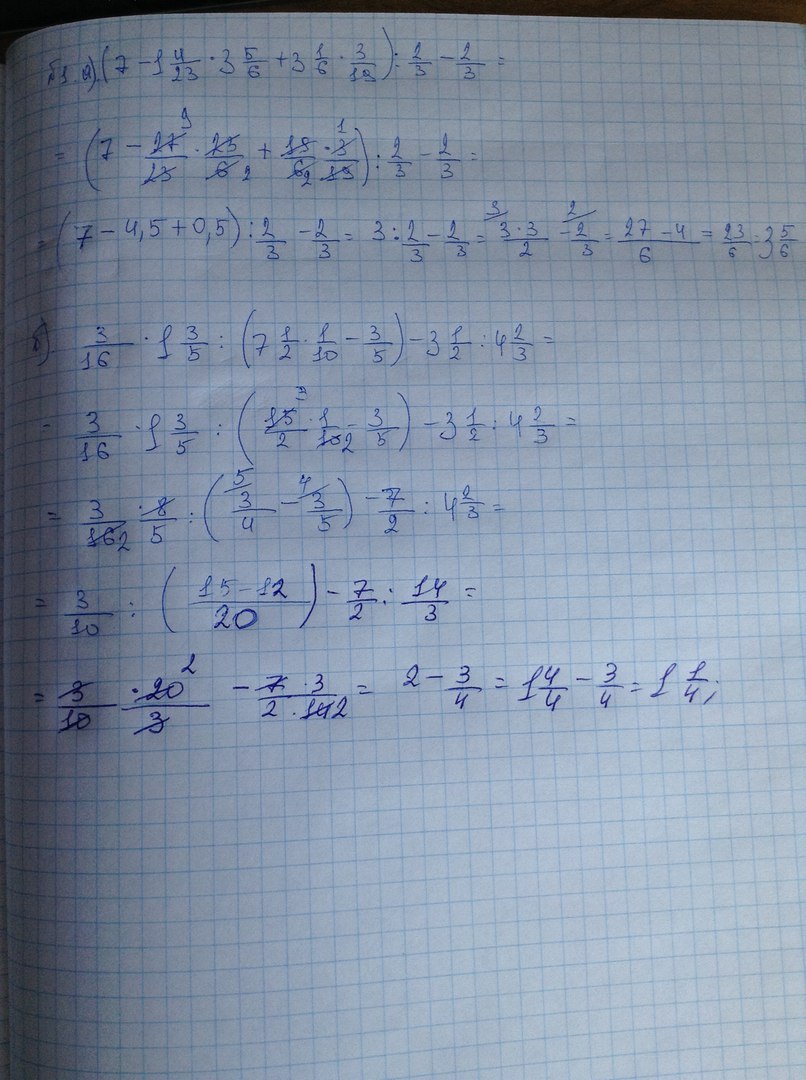 №1. а) (7 - 1 4/23 · 3 5/6 + 3 1/6 · 3/19) : 2/3 - 2/3 =
= (7 - 27/23 · 23/6 + 19/6 · 3/19) : 2/3 - 2/3 =
= (7 - 4,5 + 0,5) : 2/3 - 2/3 = 3 : 2/3 - 2/3 = 3·3/2 - 2/3 = 27-4/6 = 23/6 = 3 5/6
б) 3/16 · 1 3/5 : (7 1/2 · 1/10 - 3/5) - 3 1/2 : 4 2/3 =
= 3/16 · 1 3/5 : (15/2 · 1/10 - 3/5) - 3 1/2 : 4 2/3 =
= 3/16 · 8/5 : (3/4 - 3/5) - 7/2 : 4 2/3 =
= 3/10 : (15-12/20) - 7/2 : 14/3 =
= 3/10 · 20/3 - 7·3/2·14 = 2 - 3/4 = 1 4/4 - 3/4 = 1 1/4;